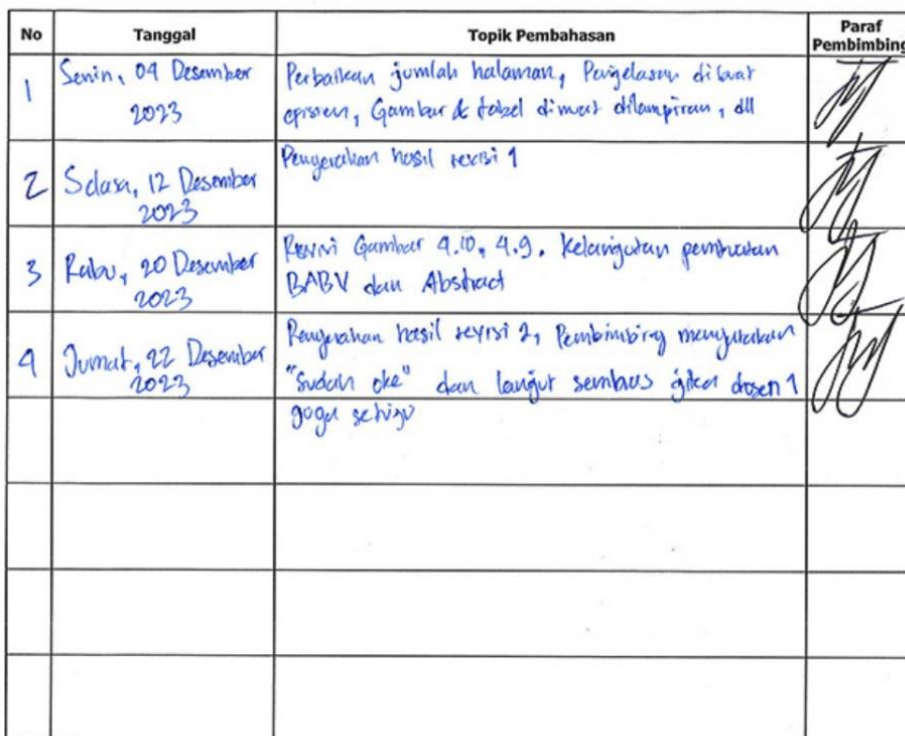 No Tanggal Topik Pembahasan Paraf Pembimbing
1 Senin, 04 Desember 2023
Perbaikan jumlah halaman, Penjelasan dibuat
efisien, Gambar & tabel dimuat dilampiran, dll
2 Selasa, 12 Desember 2023
Penyerahan hasil revisi 1
3 Rabu, 20 Desember 2023
Revisi Gambar 4.10, 4.9. Kelanjutan pembuatan
BAB V dan Abstract
4 Jumat, 22 Desember 2023
Penyerahan hasil revisi 2, Pembimbing menyatakan
"Sudah oke" dan lanjut semhas jika dosen 1
juga setuju